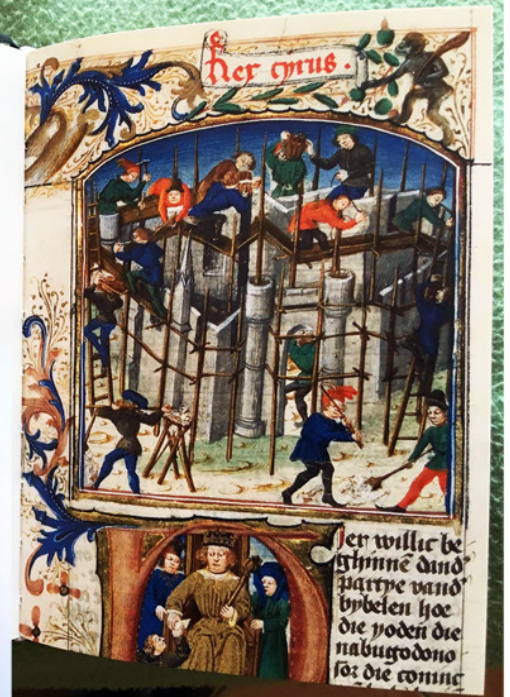 Rex cyrus .
Jer willic be
ghinnē dand
partye vand
bybelen hoe
die yoden die
nabugodono
sor die coninc